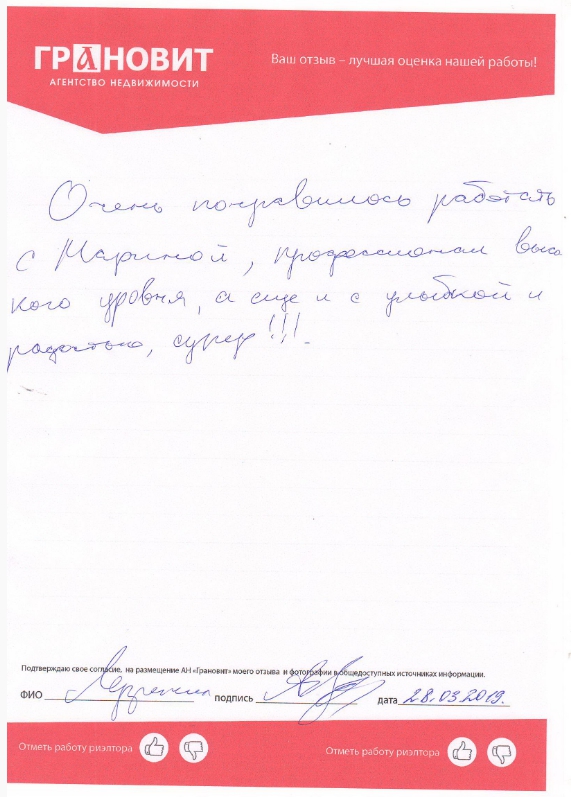 ГРАНОВИТ
АГЕНТСТВО НЕДВИЖИМОСТИ
Ваш отзыв – лучшая оценка нашей работы!
Очень понравилось работать
с Мариной, профессионал высо
кого уровня, а еще и с улыбкой и
радостью, супер!!!.
Подтверждаю свое согласие, на размещение АН «Грановит» моего отзыва и фотографии в общедоступных источниках информации.
ФИО подпись дата 28.03.2019.
Отметь работу риэлтора Отметь работу риэлтора